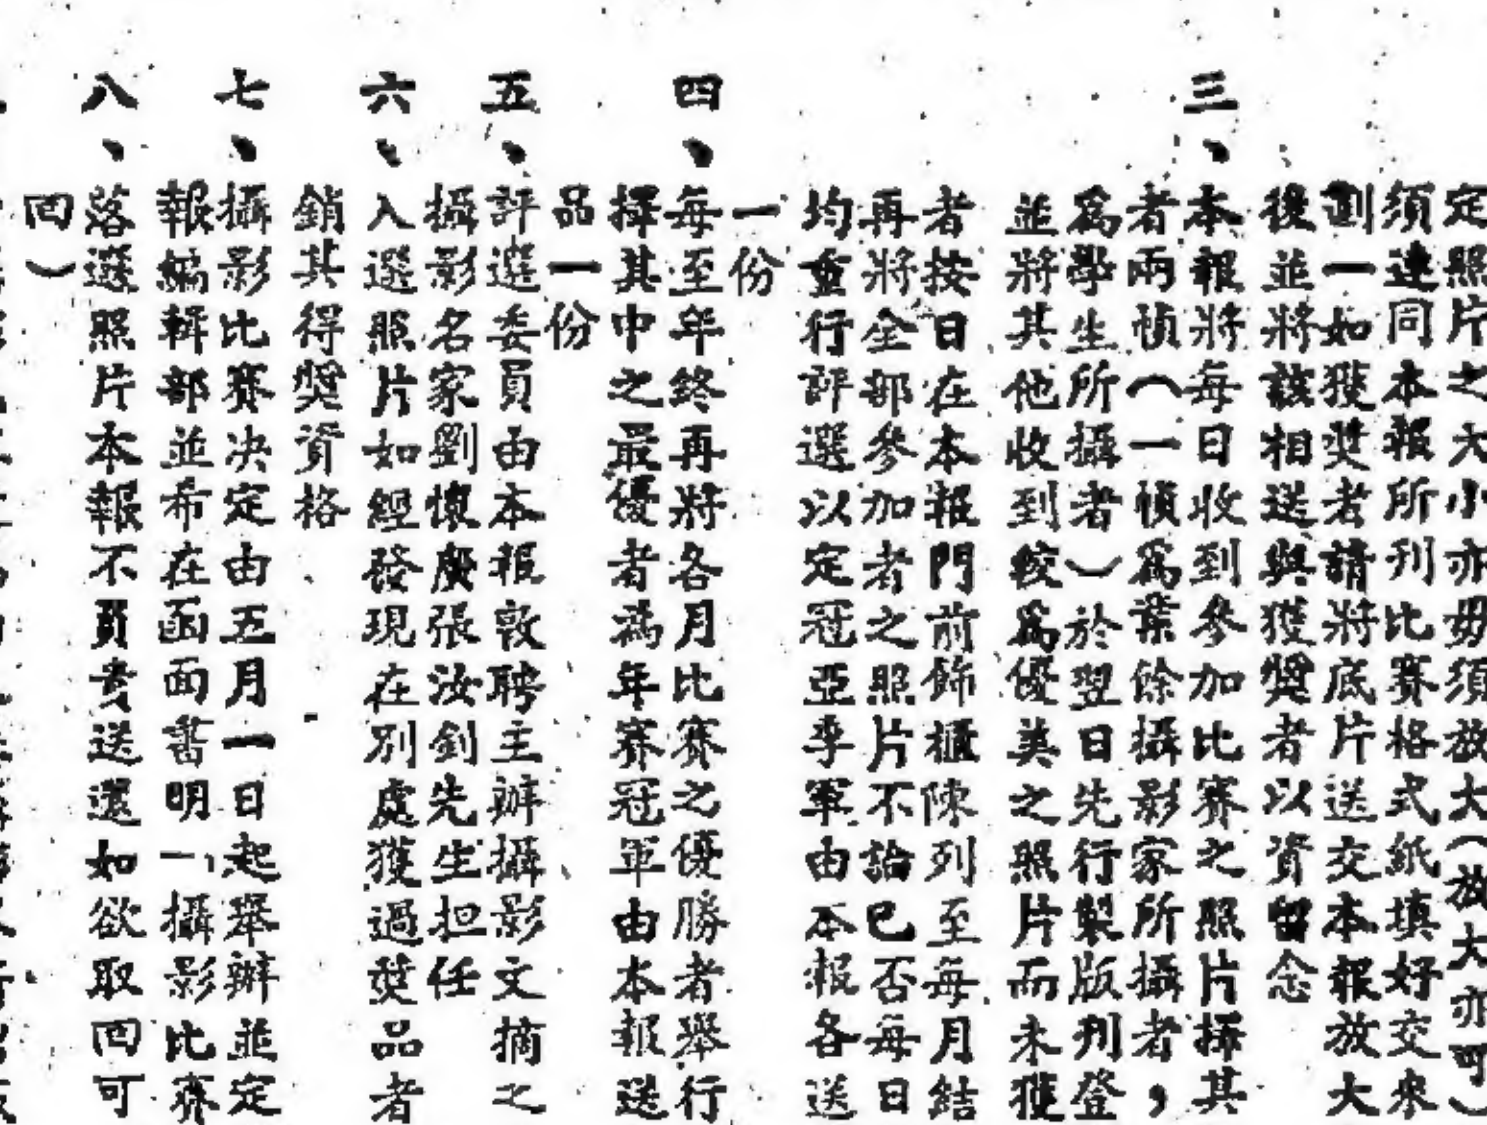 定照片之大小亦毋須放大（放大亦可）
須連同本報所刊比賽格式紙填好交來
劃一如獲奬者請將底片送交本報放大
後並將該相送與獲奬者以資留念
三、本報將每日收到參加比賽之照片擇其
者兩幀（一幀爲業餘攝影家所攝者，
爲學生所攝者）於翌日先行製版刋登
並將其他收到較爲優美之照片而未獲
者按日在本報門前飾櫃陳列至每月結
再將全部參加者之照片不論已否每日
均重行評選以定冠亞季軍由本報各送
一份
四、每至年終再將各月比賽之優勝者舉行
擇其中之最優者為年賽冠軍由本報送
品一份
五、評選委員由本報敦聘主辦攝影文摘之
攝影名家劉懷廣張汝釗先生担任
六、入選照片如經發現在別處獲過奬品者
銷其得奬資格
七、攝影比賽決定由五月一日起舉辦並定
報編輯部並希在函面書明、攝影比賽
八、落選照片本報不負責送還如欲取回可
回）